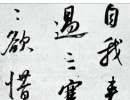 自我來
過三寒
〻欲惜